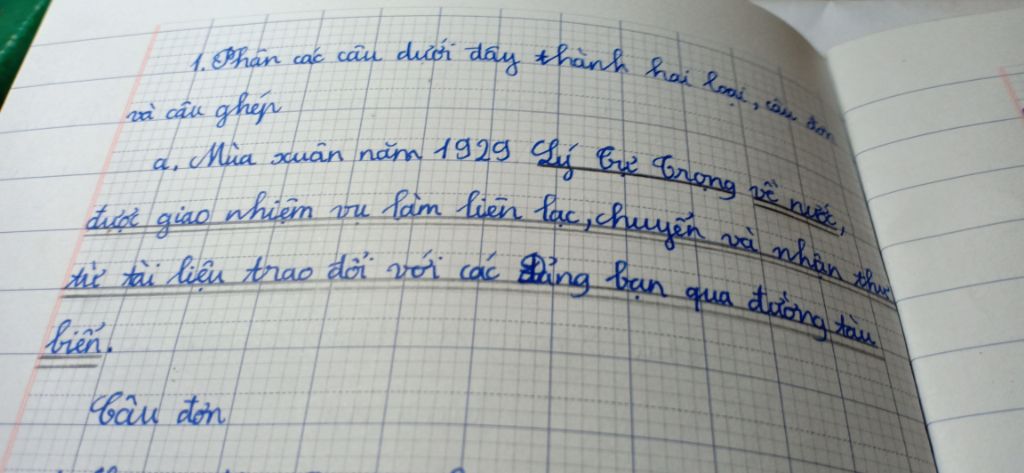 1. Phân các câu dưới đây thành hai loại, câu đơn
và câu ghép
a, Mùa xuân năm 1929 Lý Tự Trọng về nước,
được giao nhiệm vụ làm liên lạc, chuyển và nhận thư
từ tài liệu trao đổi với các Đảng bạn qua đường tàu
biến.
Câu đơn